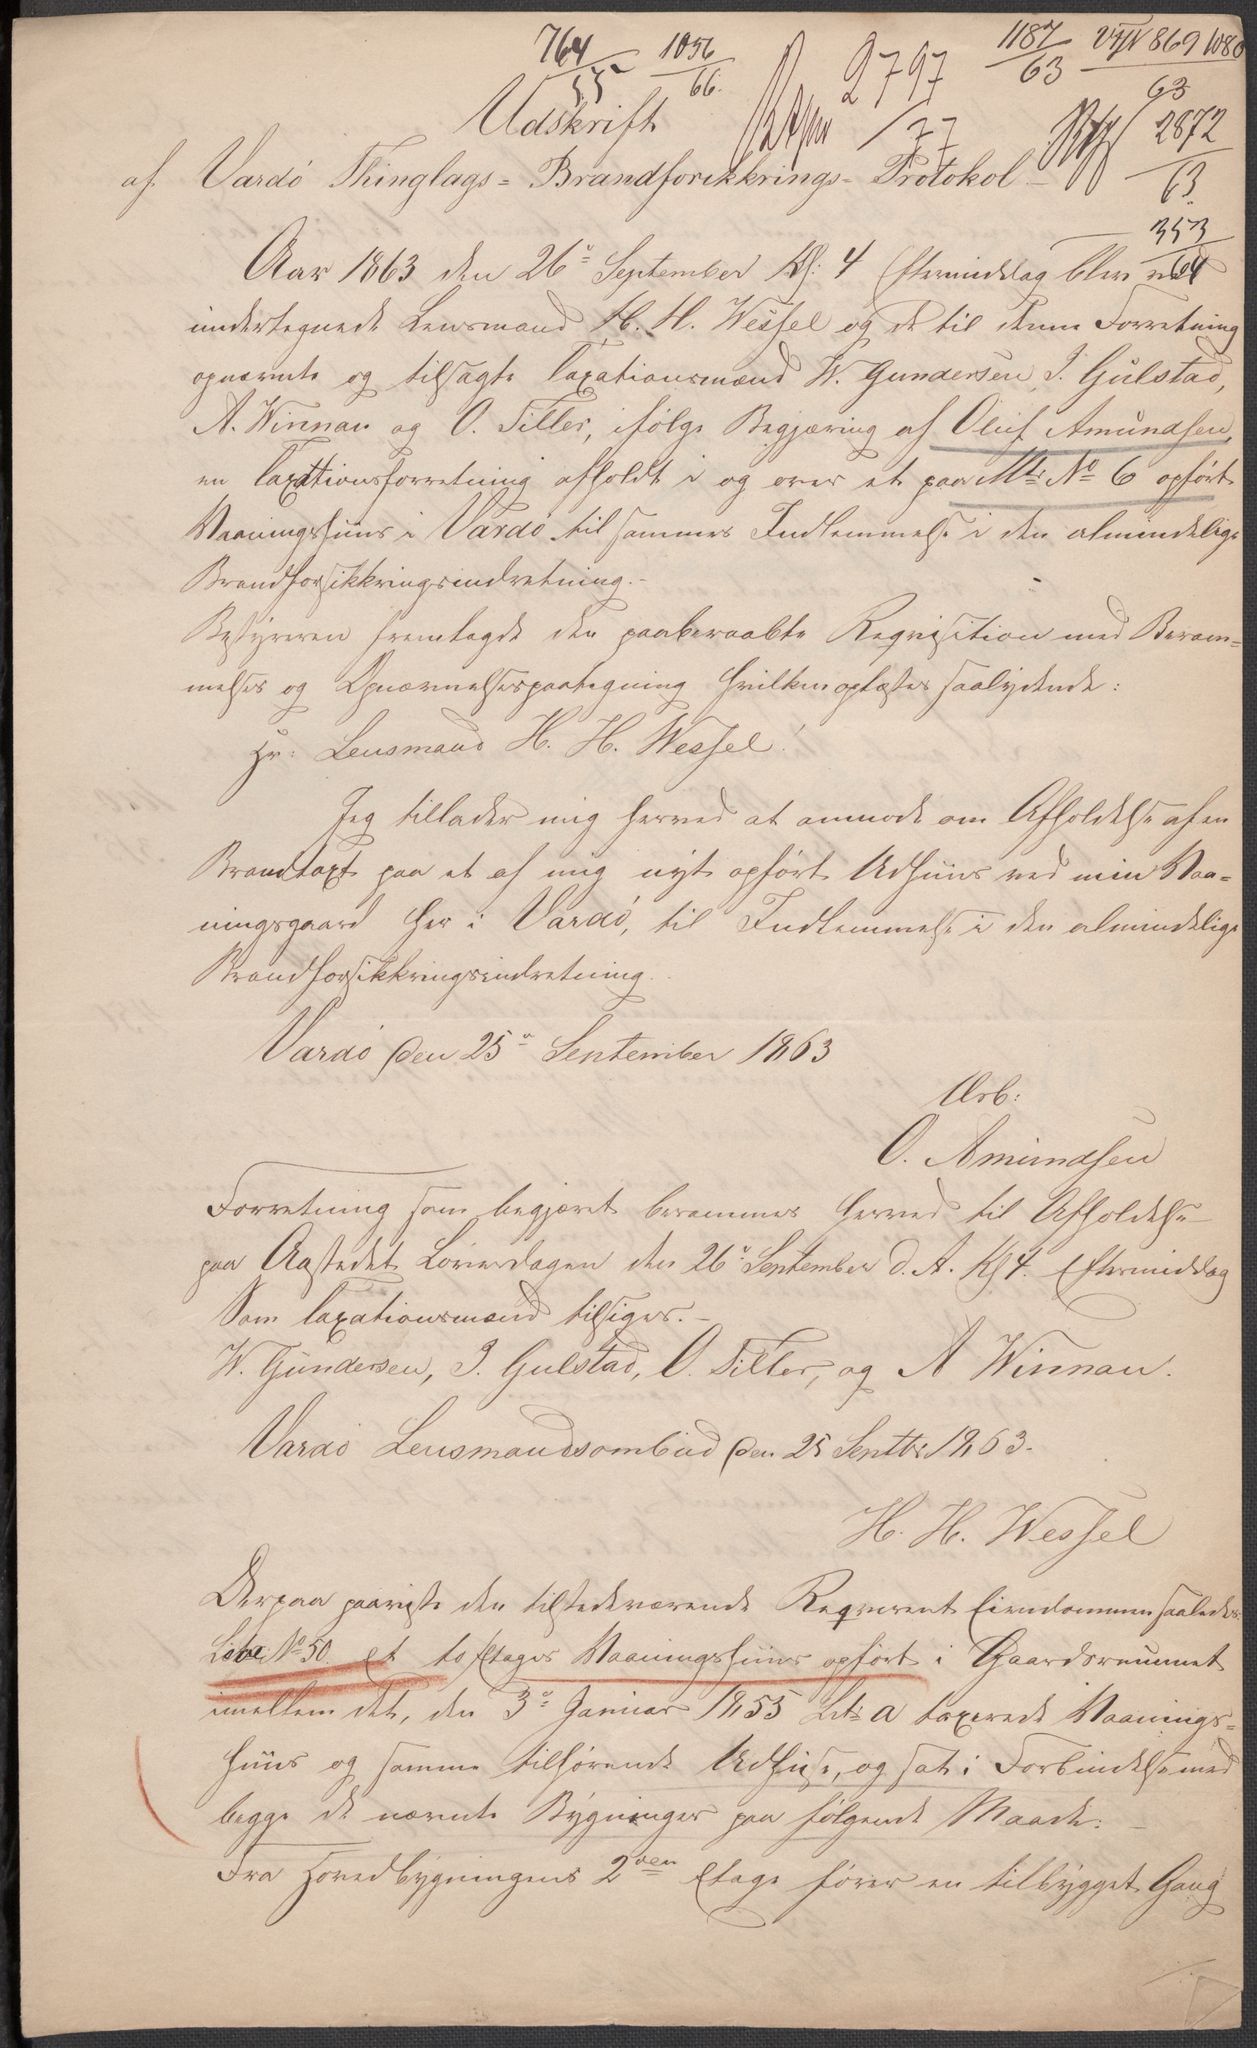 764/55 1056/66. 2797/77 1187/63 869 1080/63
Udskrift 2872/63
af Vardö Thinglags= Brandforsikkrings= Protokol. 353/64
Aar 1863 den 26de September Kl: 4 Eftermiddag blev ved
undertegnede Lensmand H. H. Wessel og de til denne Forretning
opnævnte og tilsagte Taxationsmænd W. Gundersen, J. Gulstad,
A. Winnan og O. Tiller, ifølge Begjæring af Oluf Amundsen,
en Taxationsforretning afholdt i og over et paa Mtr: No 6 opført
Vaaningshuus i Vardö til sammes Indlemmelse i den almindelige
Brandforsikkringsindretning.-
Bestyreren fremlagde den paaberaabte Reqvisition med Beram=
melses og Opnævnelsespaategning hvilken oplæstes saalydende:
Hr: Lensmand H. H. Wessel!
Jeg tillader mig herved at anmode om Afholdelse af en
Brandtaxt paa et af mig nyt opført Udhuus ved min Vaa=
ningsgaard her i Vardö, til Indlemmelse i den almindelige
Brandforsikkringsindretning.
Vardö den 25de September 1863
Ærb:
O. Amundsen
Forretning som begjæret berammes herved til Afholdelse
paa Aastedet Löverdagen den 26de September d. A. Kl 4. Eftermiddag
Som Taxationsmænd tilsiges.-
W. Gundersen, J. Gulstad, O. Tiller, og A Winnan.
Vardö Lensmandsombud den 25 Septbr 1863.
H. H. Wessel
Derpaa paaviste den tilstedeværende Reqvirent Eiendommen saaledes:
No 50. Et to Etages Vaaningshuus opført i Gaardsrummet
imellem det, den 3de Januar 1855 Litr: a taxerede Vaanings=
huus og samme tilhørende Udhuse, og sat i Forbindelse med
begge de nævnte Bygninger paa følgende Maade:
Fra Hovedbygningens 2den Etage fører en tilbygget Gang